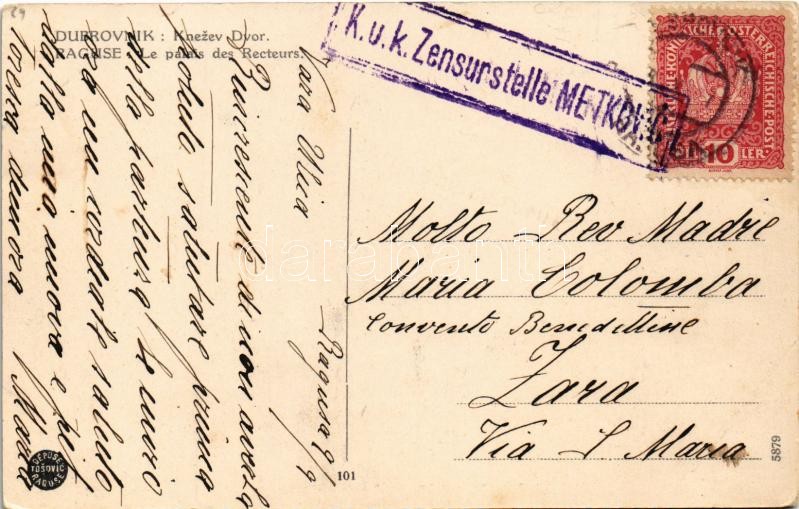 DUBROVNIK : Knežev Dvor.
RAGUSE : Le palais des Recteurs.
K.u.k. Zensurstelle METKOVIĆ
KAISERLICHE KÖNIGLICHE ÖSTERREICHISCHE POST
10 HELLER
Cara Ulcia
Ragusa 9/9
Rincrescente di non averla
potuto salutare prima
della partenza Le invio
da qui cordiale saluto
dalla mia nuova e più
Maria
Molto Rev Madre
Maria Colomba
Convento Benedettine
Zara
Via S. Maria
DEPOSÉ
TOŠOVIĆ
RAGUSE
101
5879
darabanth